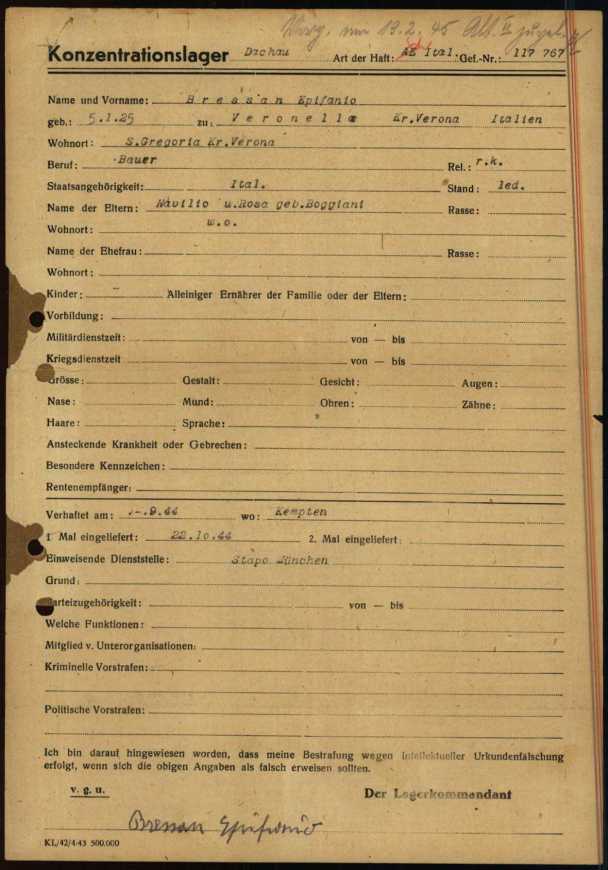 19.2.45 Abt. II
Konzentrationslager Dachau Art der Haft: AZ Ital. Gef.-Nr.: 117 767
Name und Vorname: Bressan Epifanio
geb.: 5.1.25 zu: Veronella Kr.Verona Italien
Wohnort: S.Gregoria Kr.Verona
Beruf: Bauer Rel.: r.k.
Staatsangehörigkeit: Ital. Stand: led.
Name der Eltern: Navilio u.Rosa geb.Boggiani Rasse:
Wohnort: w.o.
Name der Ehefrau: Rasse:
Wohnort:
Kinder: Alleiniger Ernährer der Familie oder der Eltern:
Vorbildung:
Militärdienstzeit: von — bis
Kriegsdienstzeit von — bis
Grösse: Gestalt: Gesicht: Augen:
Nase: Mund: Ohren: Zähne:
Haare: Sprache:
Ansteckende Krankheit oder Gebrechen:
Besondere Kennzeichen:
Rentenempfänger:
Verhaftet am: -.9.44 wo: Kempten
1 Mal eingeliefert: 22.10.44 2. Mal eingeliefert:
Einweisende Dienststelle: Stapo München
Grund:
Parteizugehörigkeit: von — bis
Welche Funktionen:
Mitglied v. Unterorganisationen:
Kriminelle Vorstrafen:
Politische Vorstrafen:
Ich bin darauf hingewiesen worden, dass meine Bestrafung wegen intellektueller Urkundenfälschung
erfolgt, wenn sich die obigen Angaben als falsch erweisen sollten.
v. g. u. Der Lagerkommandant
Bressan Epifanio
KL/42/4.43 500.000